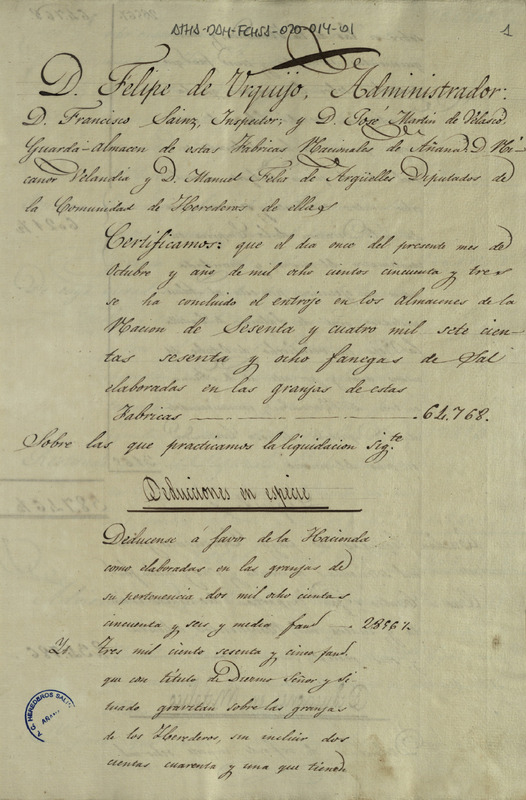 ATHA-DAH-FCHSA-020-014-01
1
D. Felipe de Urquijo, Administrador:
D. Francisco Sainz, Inspector; y D. José Martin de Velasco
Guarda-almacen de estas Fabricas Nacionales de Añana. D. Ni-
canor Velandia y D. Manuel Felix de Argüelles Diputados de
la Comunidad de Herederos de ellas
Certificamos: que el dia once del presente mes de
Octubre y año de mil ocho cientos cincuenta y tres
se ha concluido el entroje en los almacenes de la
Nacion de Sesenta y cuatro mil sete cien-
tas sesenta y ocho fanegas de Sal
elaboradas en las granjas de estas
Fabricas 64,768.
Sobre las que practicamos la liquidacion sigte
Deducciones en especie
Dedúcense á favor de la Hacienda
como elaboradas en las granjas de
su pertenencia dos mil ocho cientas
cincuenta y seis y media fand
Y tres mil ciento sesenta y cinco fand.
que con título de Diezmo Señor y Si
tuado gravitan sobre las granjas
de los Herederos, sin incluir dos
cientas cuarenta y una que tienen
HEREDEROS